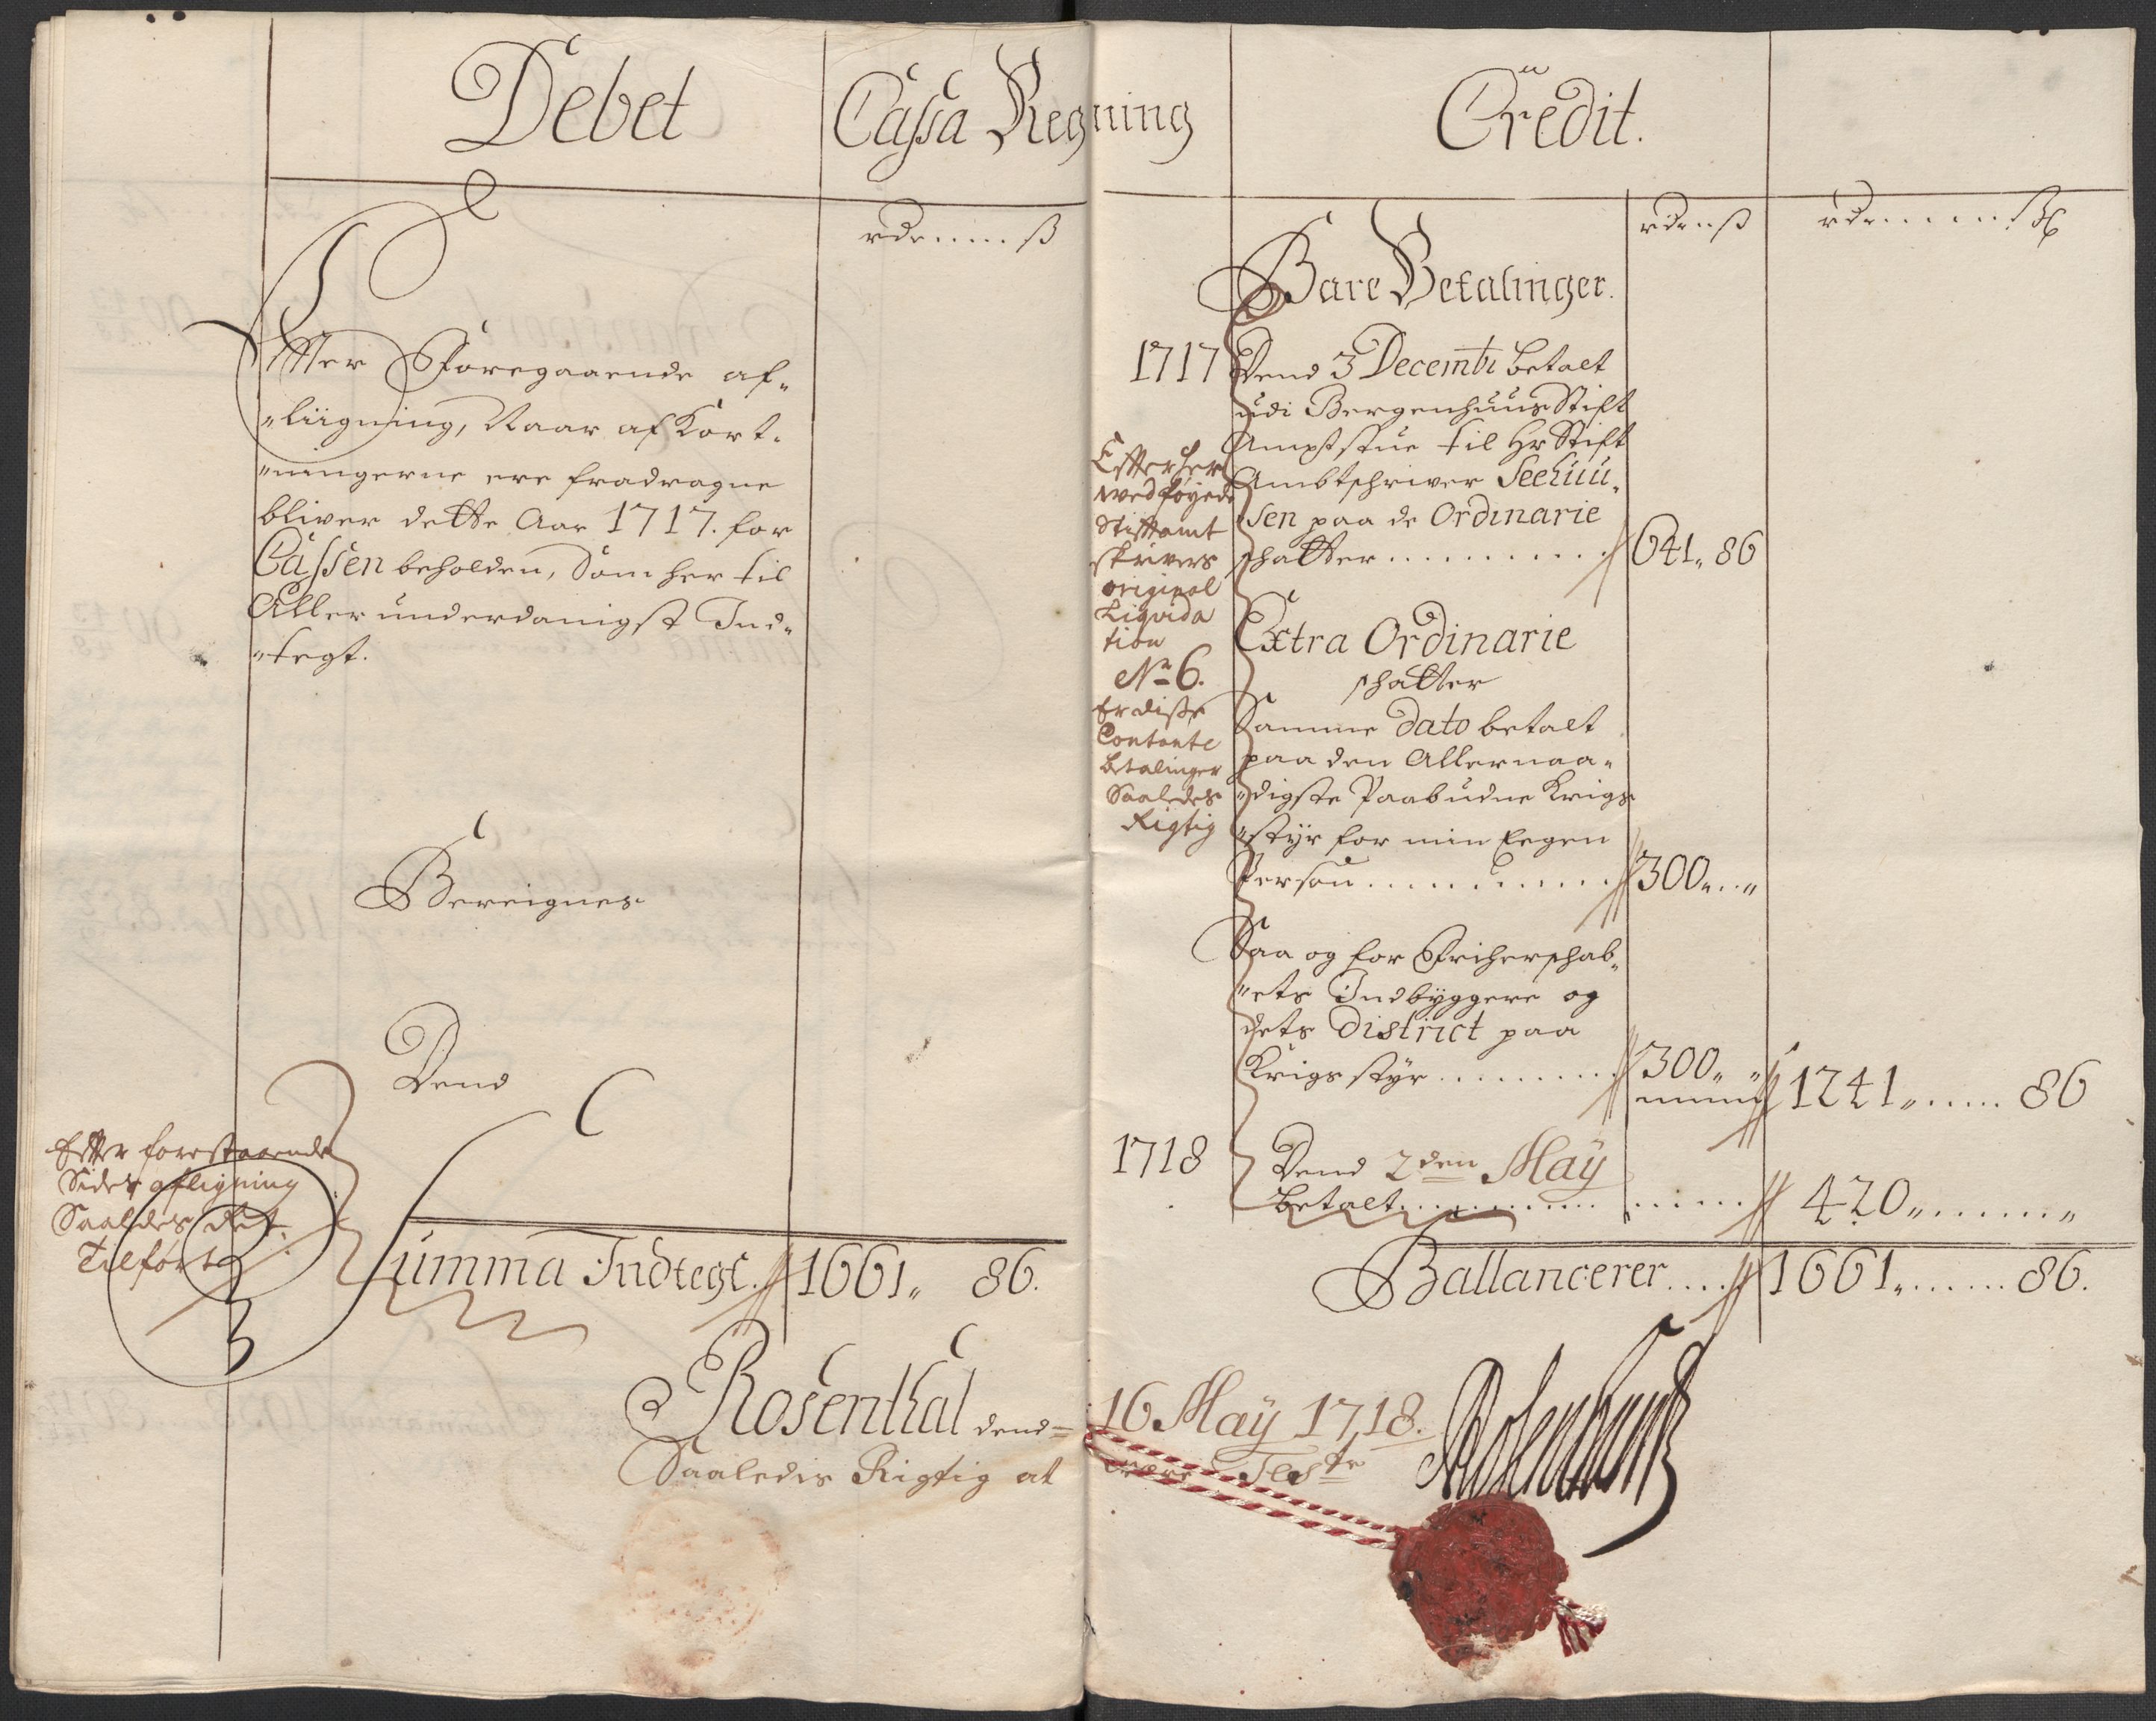 Debet
Cassa Regning
Credit.
rdr....ß
Effter Foregaaende af„
„liigning, Naar afKort„
„ningerne ere fradragne
bliver dette Aar 1717. for
Cassen beholden, Som her til
Allerunderdanigst Ind„
„tegt.
Bereignes
Dend
Effter forestaaende
Sides afligning
Saaledes Ret
Tilført
Summa Indtegt. 1661„ 86.
Rosenthal dend
Saaledis Rigtig at
rdr..ß
rdr......ß
Bare Betalinger.
1717 Dend 3 Decembr betalt
udi Bergenhuus Stift
Ampstue til Hr Stift
Ambtschriver Seehuu„
„sen paa de Ordinarie
schatter.......... 641„ 86
Effter her
wed føyede
Stifftamt
skrivers
original
Liqvida
tion
No 6.
Er disse
Contante
betalinger
Saaledes
Rigtig
Extra Ordinarie
schatter
Samme Dato betalt
paa den Allernaa„
„digste Paabudne Krigs
„styr for min Eegen
Person............ 300„..„
Saa og for Friherschab„
„ets Indbyggere og
dets District paa
Krigs styr......... 300„ „ 1241„..... 86
1718 Dend 2den Maÿ
betalt.............. 420„......„
Ballancerer.... 1661„...... 86.
16 Maÿ 1718.
være Teste